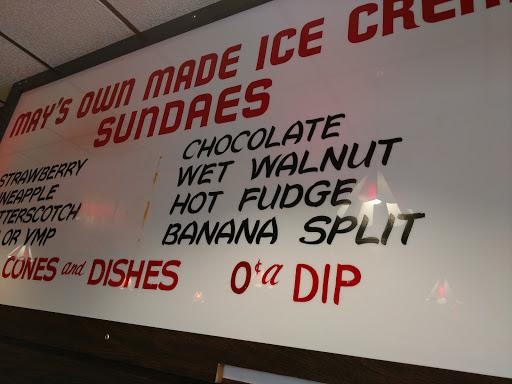 MAY'S OWN MADE ICE CREA
SUNDAES
STRAWBERRY
NEAPPLE
TTERSCOTCH
OR VMP
CHOCOLATE
WET WALNUT
HOT FUDGE
BANANA SPLIT
CONES and DISHES 0¢ a DIP